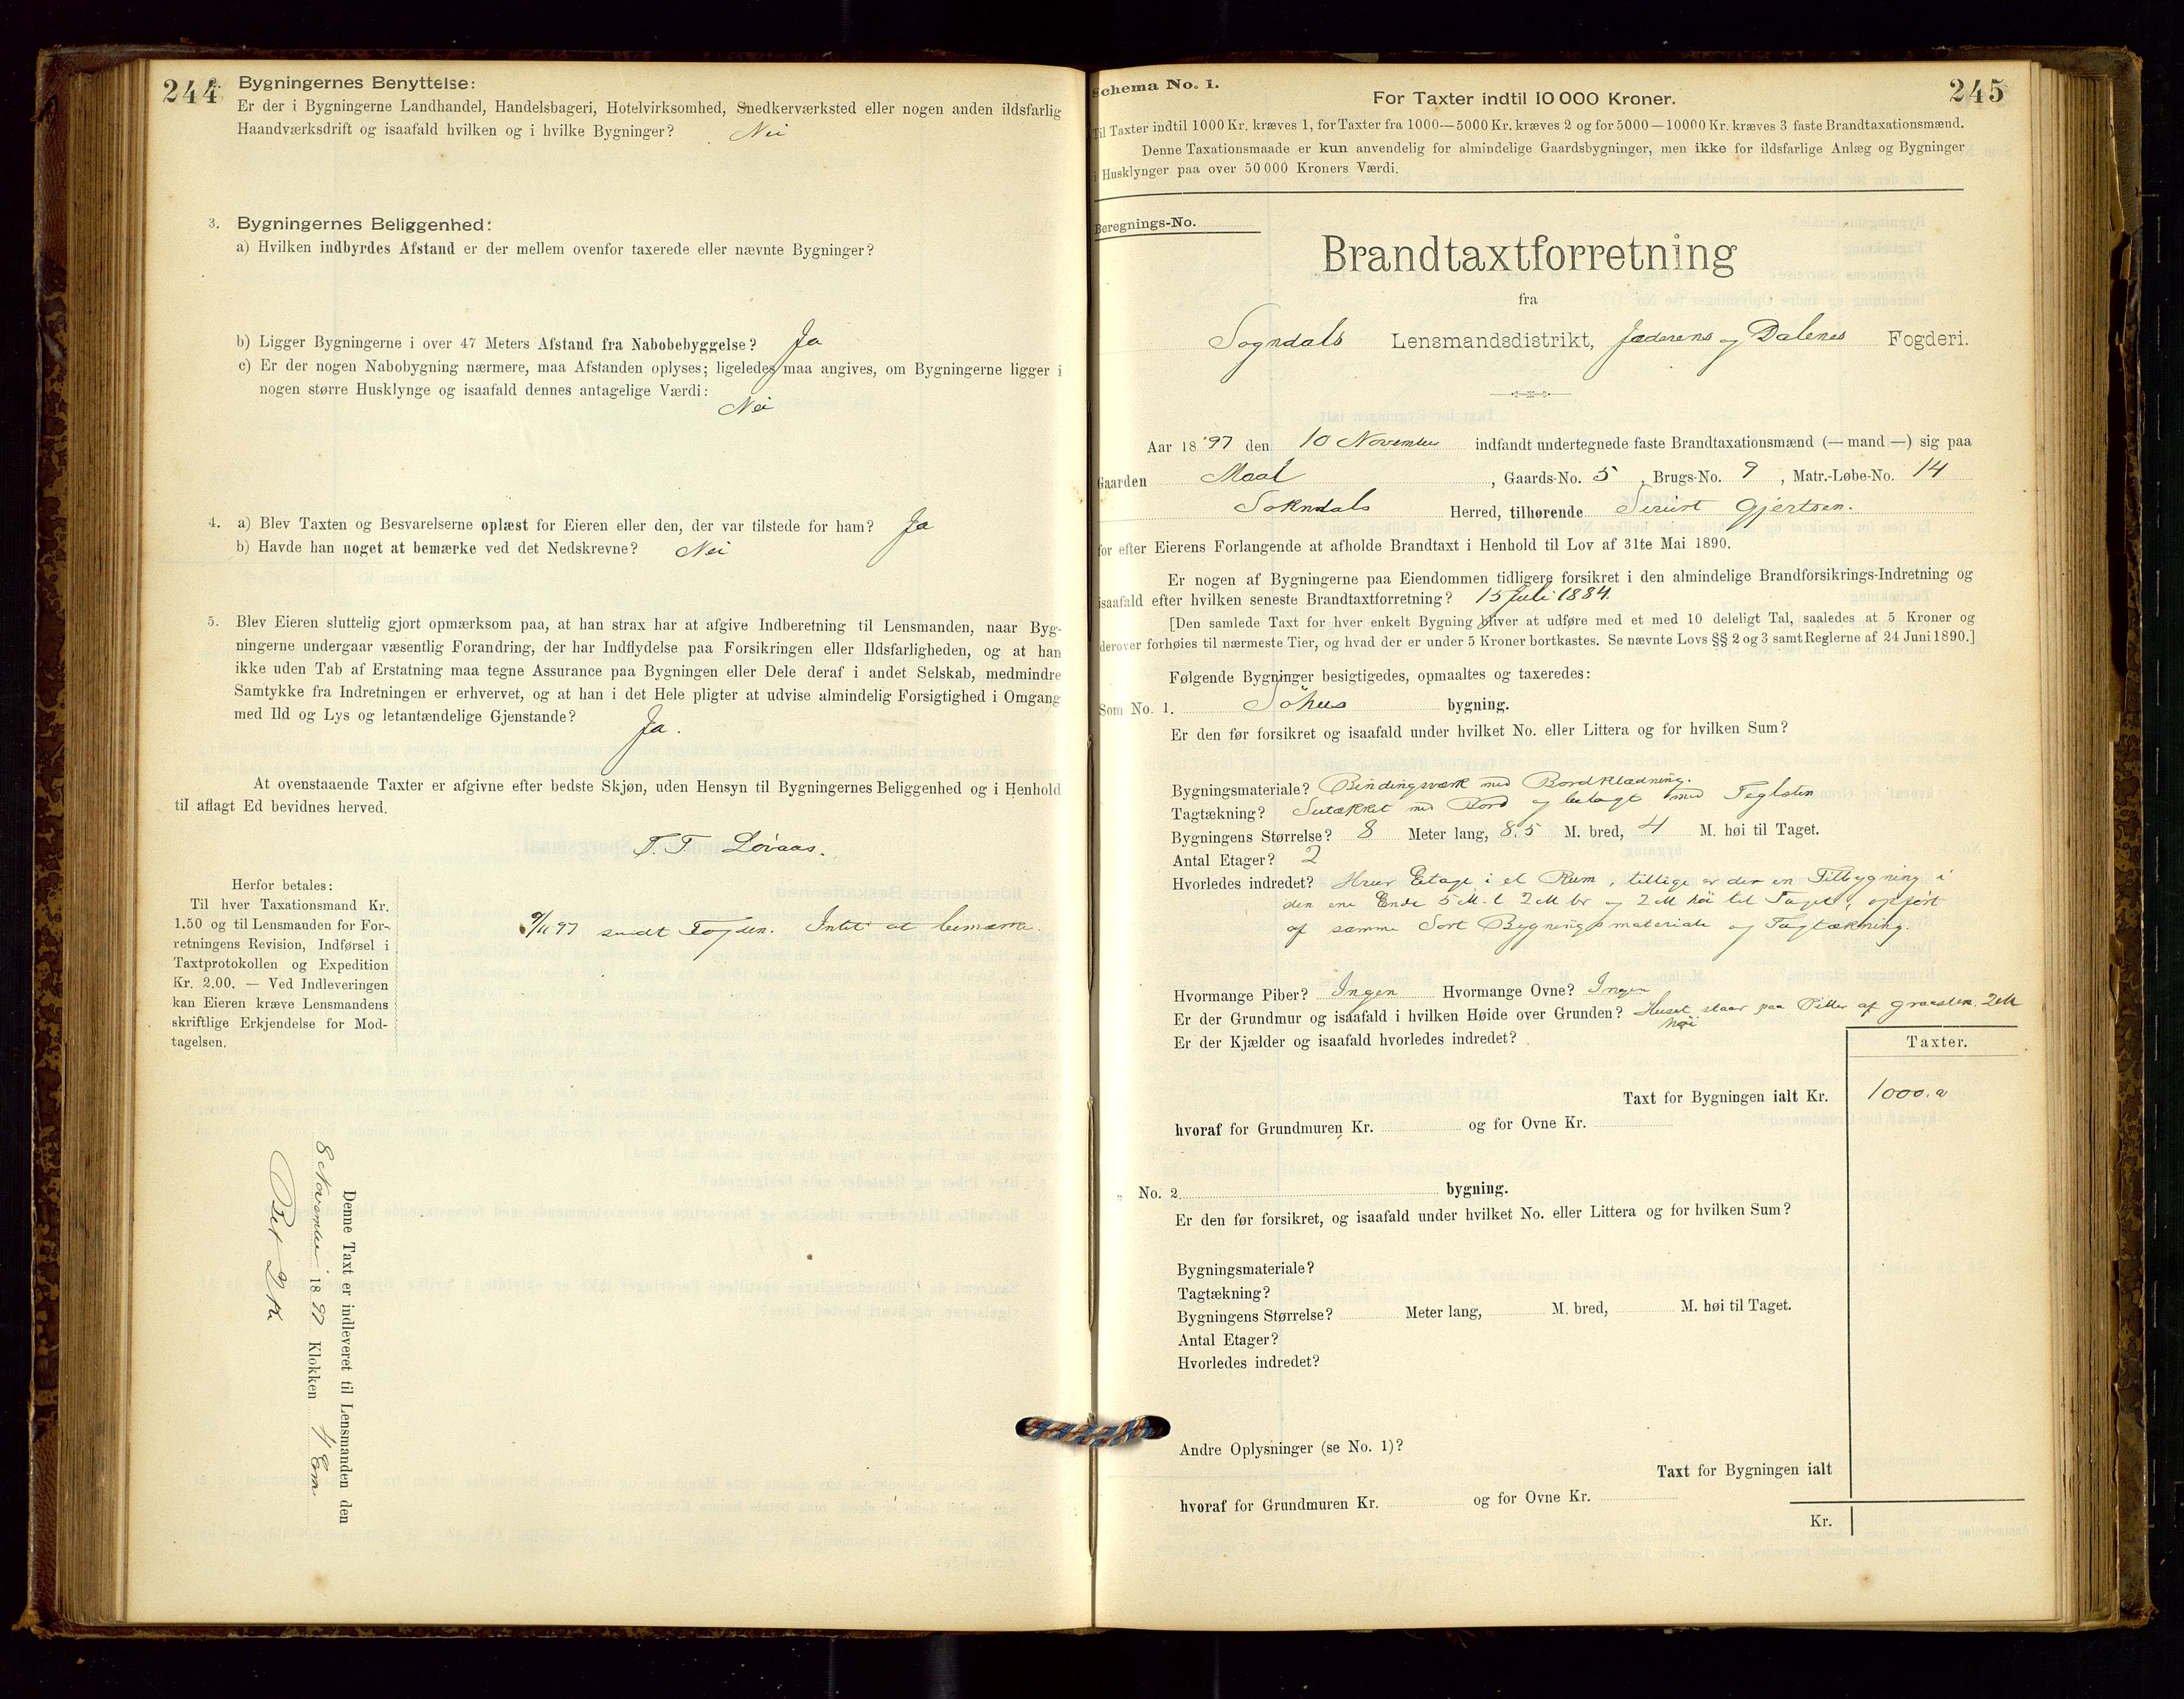 244
Bygningernes Benyttelse:
Er der i Bygningerne Landhandel, Handelsbageri, Hotelvirksomhed, Snedkerværksted eller nogen anden ildsfarlig
Haandværksdrift og isaafald hvilken og i hvilke Bygninger? Nei
3. Bygningernes Beliggenhed:
a) Hvilken indbyrdes Afstand er der mellem ovenfor taxerede eller nævnte Bygninger?
b) Ligger Bygningerne i over 47 Meters Afstand fra Nabobebyggelse? Ja
c) Er der nogen Nabobygning nærmere, maa Afstanden oplyses; ligeledes maa angives, om Bygningerne ligger i
nogen større Husklynge og isaafald dennes antagelige Værdi:
Nei
4. a) Blev Taxten og Besvarelserne oplæst for Eieren eller den, der var tilstede for ham? Ja
b) Havde han noget at bemærke ved det Nedskrevne? Nei
5. Blev Eieren sluttelig gjort opmærksom paa, at han strax har at afgive Indberetning til Lensmanden, naar Byg-
ningerne undergaar væsentlig Forandring, der har Indflydelse paa Forsikringen eller Ildsfarligheden, og at han
ikke uden Tab af Erstatning maa tegne Assurance paa Bygningen eller Dele deraf i andet Selskab, medmindre
Samtykke fra Indretningen er erhvervet, og at han i det Hele pligter at udvise almindelig Forsigtighed i Omgang
med Ild og Lys og letantændelige Gjenstande? Ja.
At ovenstaaende Taxter er afgivne efter bedste Skjøn, uden Hensyn til Bygningernes Beliggenhed og i Henhold
til aflagt Ed bevidnes herved.
T. T. Løvaas.
Herfor betales:
Til hver Taxationsmand Kr.
1.50 og til Lensmanden for For-
retningens Revision, Indførsel i
Taxtprotokollen og Expedition
Kr. 2.00. — Ved Indleveringen
kan Eieren kræve Lensmandens
skriftlige Erkjendelse for Mod-
tagelsen.
9/11 97 sendt Fogden. Intet at bemærke.
Denne Taxt er indleveret til Lensmanden den
8 November 1897 Klokken 4 Em
245
Schema No. 1.
For Taxter indtil 10 000 Kroner.
Til Taxter indtil 1000 Kr. kræves 1, for Taxter fra 1000—5000 Kr. kræves 2 og for 5000—10000 Kr. kræves 3 faste Brandtaxationsmænd.
Denne Taxationsmaade er kun anvendelig for almindelige Gaardsbygninger, men ikke for ildsfarlige Anlæg og Bygninger
i Husklynger paa over 50 000 Kroners Værdi.
Beregnings-No.
Brandtaxtforretning
fra
Sogndals Lensmandsdistrikt, Jæderens og Dalenes Fogderi.
Aar 1897 den 10 November indfandt undertegnede faste Brandtaxationsmænd (— mand —) sig paa
Gaarden Maal, Gaards-No. 5, Brugs-No. 9, Matr.-Løbe-No. 14
Sokndals Herred, tilhørende Gjertsen.
for efter Eierens Forlangende at afholde Brandtaxt i Henhold til Lov af 31te Mai 1890.
Er nogen af Bygningerne paa Eiendommen tidligere forsikret i den almindelige Brandforsikrings-Indretning og
isaafald efter hvilken seneste Brandtaxtforretning? 15 Juli 1884.
[Den samlede Taxt for hver enkelt Bygning bliver at udføre med et med 10 deleligt Tal, saaledes at 5 Kroner og
derover forhøies til nærmeste Tier, og hvad der er under 5 Kroner bortkastes. Se nævnte Lovs §§ 2 og 3 samt Reglerne af 24 Juni 1890.]
Følgende Bygninger besigtigedes, opmaaltes og taxeredes:
Som No. 1. Söhus bygning.
Er den før forsikret og isaafald under hvilket No. eller Littera og for hvilken Sum?
Bygningsmateriale? Bindingsværk med Bordklædning.
Tagtækning? Sutækket med Bord og belagt med Teglsten
Bygningens Størrelse? 8 Meter lang, 8.5 M. bred, 4 M. høi til Taget.
Antal Etager? 2
Hvorledes indredet? Hver Etage i et Rum, tillige er der en Tilbygning i
den ene Ende 5 M. l 2 M br og 2 M höi til Taget, opfört
af samme Sort Bygningsmateriale og Tagtækning.
Hvormange Piber? Ingen Hvormange Ovne? Ingen
Er der Grundmur og isaafald i hvilken Høide over Grunden? Huset staar paa Piller af graasten. 2 M
höi
Er der Kjælder og isaafald hvorledes indredet?
Taxter.
Taxt for Bygningen ialt Kr. 1000.
hvoraf for Grundmuren Kr. og for Ovne Kr.
„ No. 2. bygning.
Er den før forsikret, og isaafald under hvilket No. eller Littera og for hvilken Sum?
Bygningsmateriale?
Tagtækning?
Bygningens Størrelse? Meter lang, M. bred, M. høi til Taget.
Antal Etager?
Hvorledes indredet?
Andre Oplysninger (se No. 1)?
Taxt for Bygningen ialt
hvoraf for Grundmuren Kr. og for Ovne Kr.
Kr.